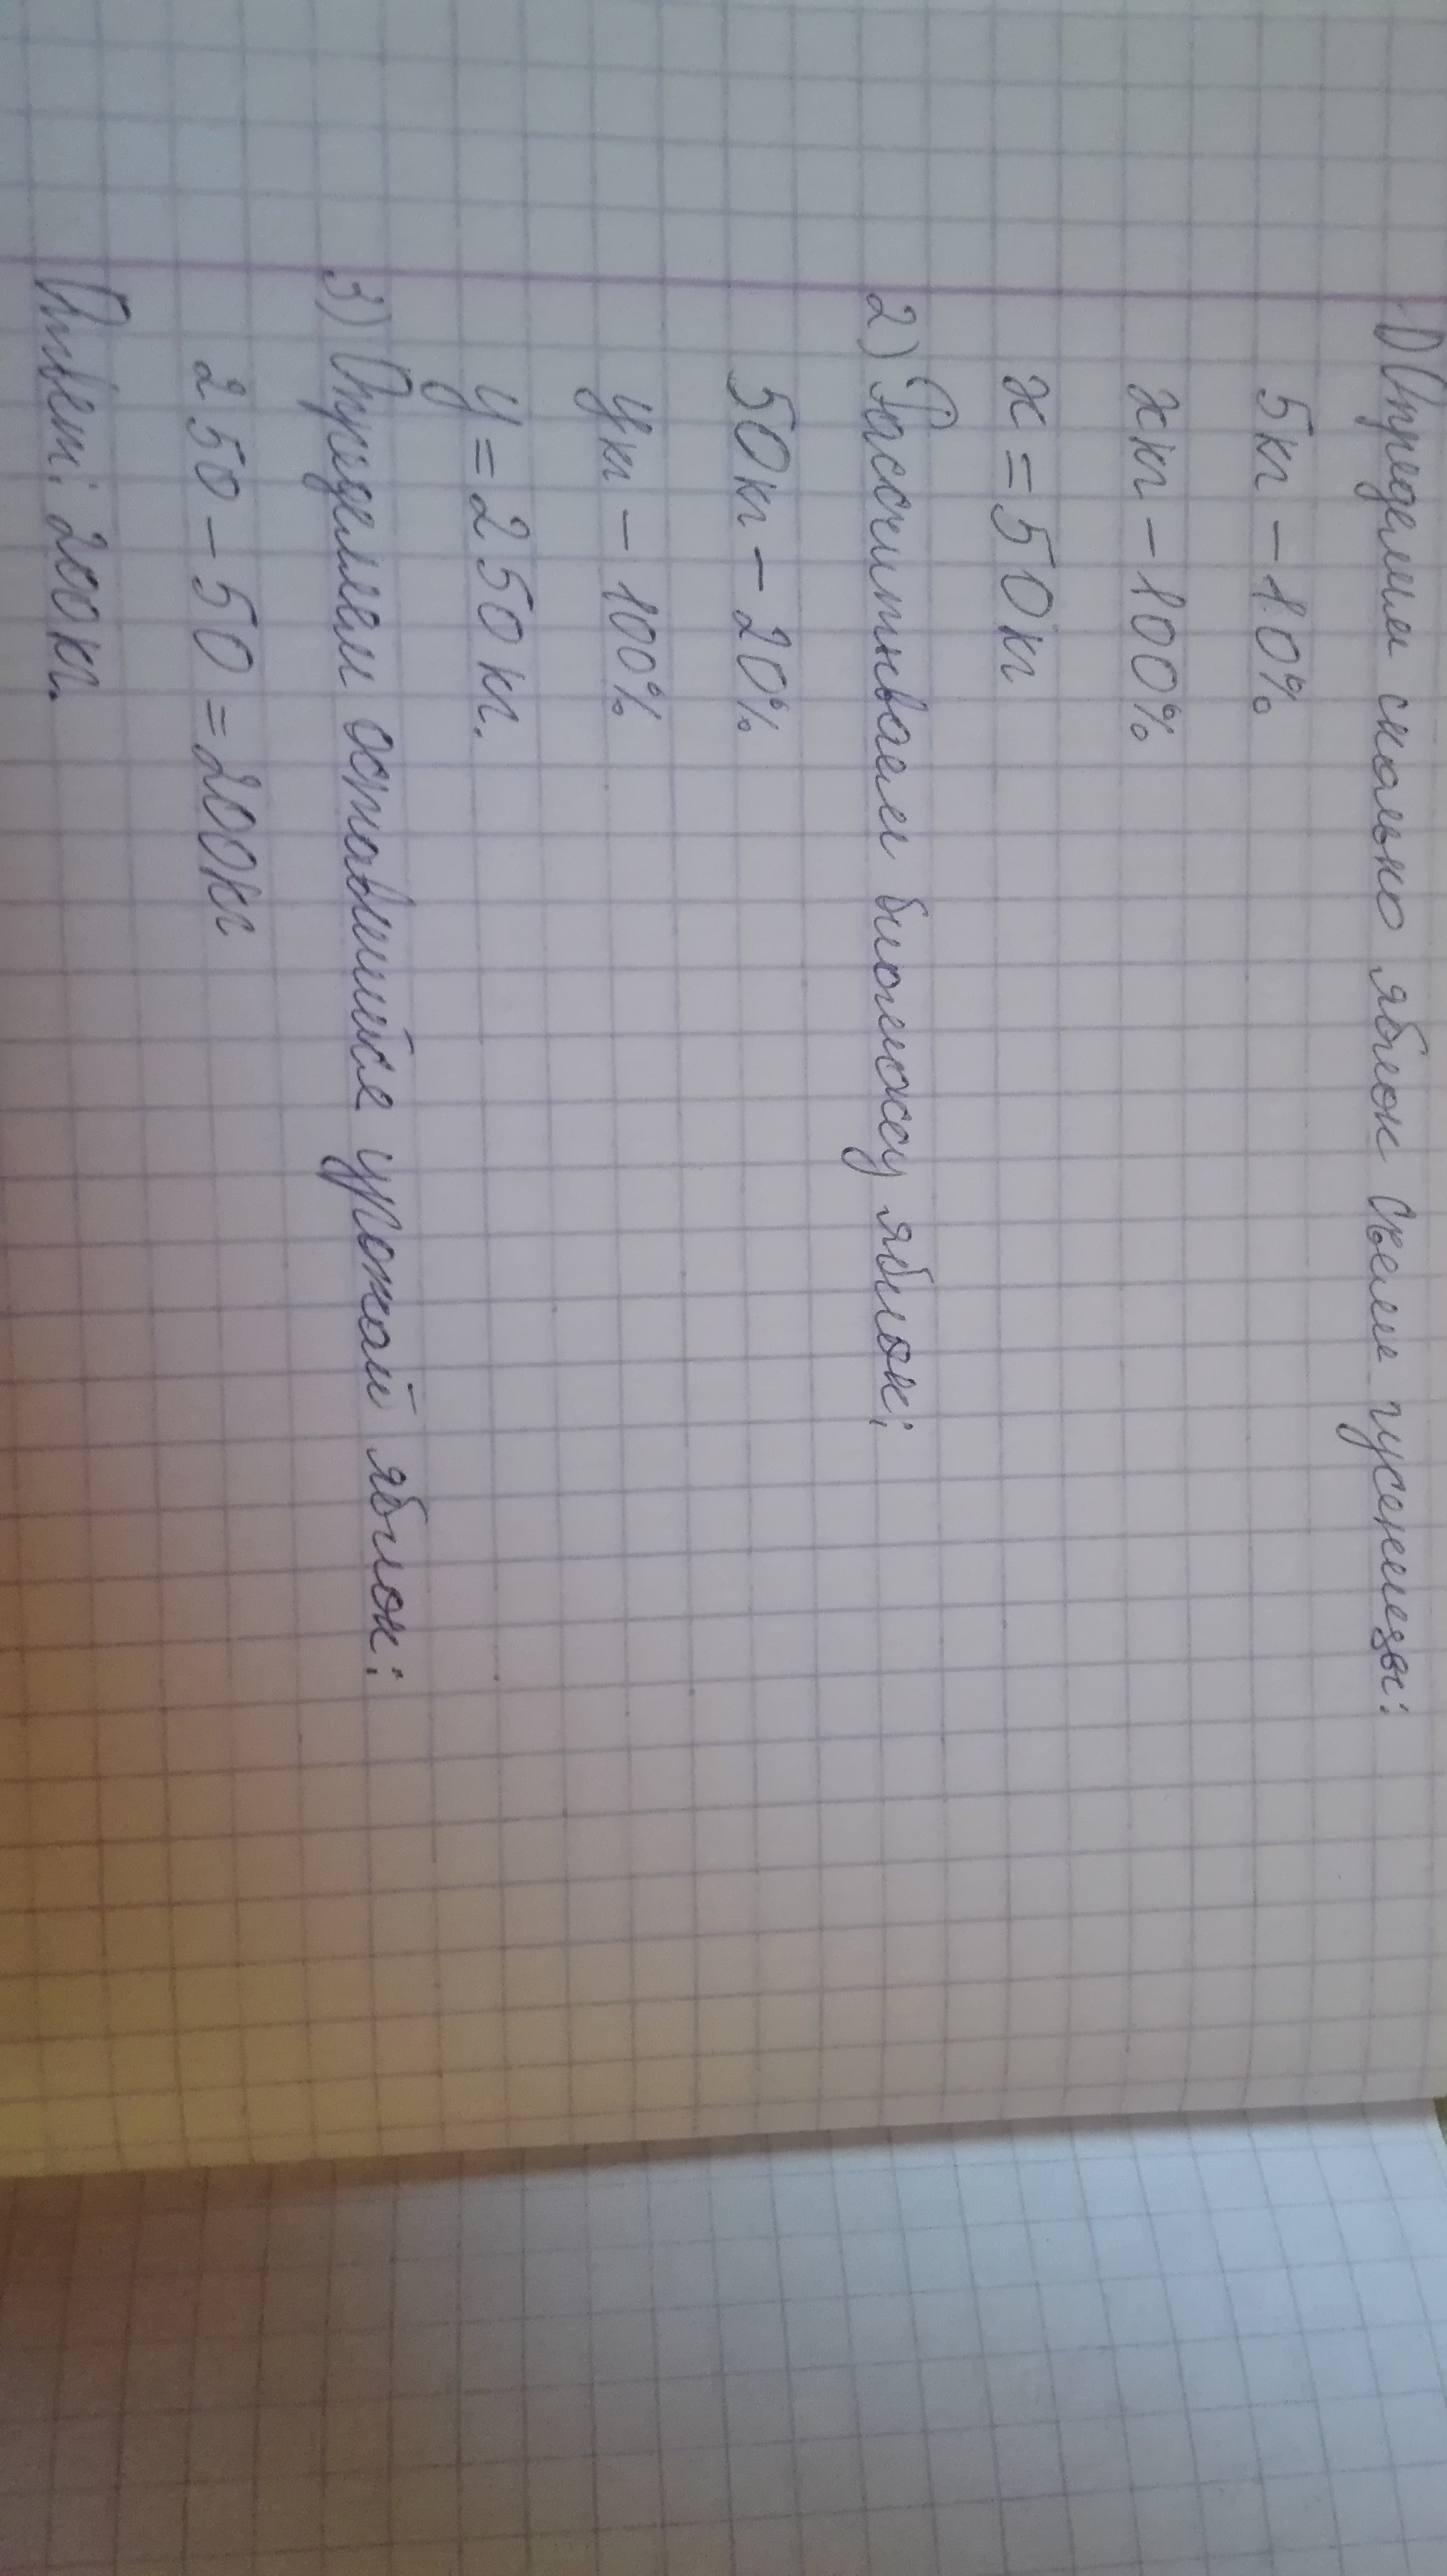 1) Определим сколько яблок съели гусеницы:
5кг – 10%
xкг – 100%
x = 50кг
2) Рассчитываем биомассу яблок:
50кг – 20%
yкг – 100%
y = 250кг.
3) Определяем оставшийся урожай яблок:
250 – 50 = 200кг
Ответ: 200кг.